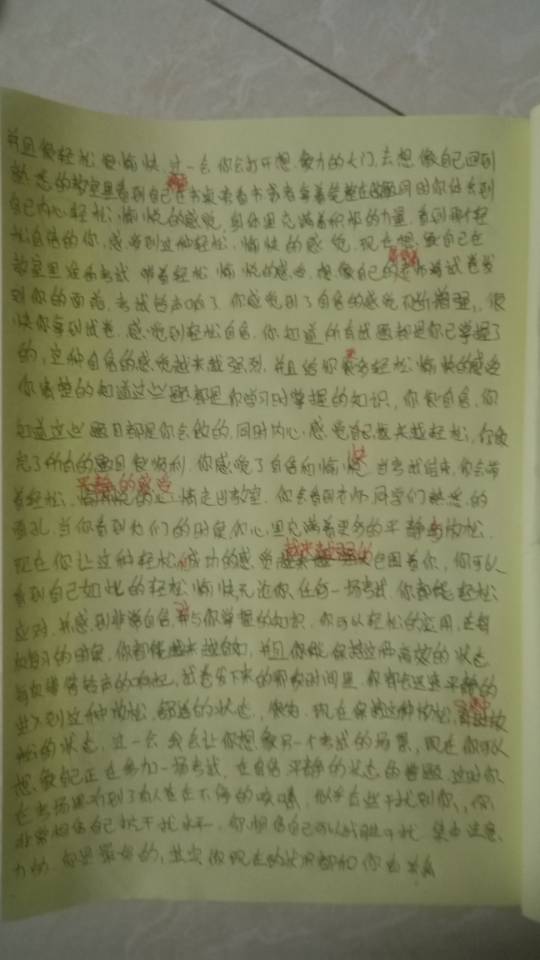 并且很轻松很愉快,这一会你会打开想象力的大门,去想像自己回到
熟悉的教室里看到自己在书桌 同时你体会到
自己内心轻松,愉悦的感觉,身体里充满着积极的力量,看到那个轻
松自信的你,感受到这种轻松,愉快的感觉,现在想象自己在
教室里准备考试 带着轻松愉悦的感觉,想像自己的老师将试卷发
到你的面前,考试铃声响了,你感觉到了自信的感觉不断增强,很
快你拿到试卷,感觉到轻松自信,你知道所有试题都是你已掌握了
的,这种自信的感觉越来越强烈,并且给你带来轻松愉快的感觉
你清楚的知道这些题都是你学习时掌握的知识,你很自信,你
知道这些题目都是你会做的,同时内心,感觉自己越来越轻松,你做
完了所有的题目很顺利,你感觉了自信和愉快,当考试结束,你会带
着轻松,平静的感觉 走出教室,你会看到老师同学们熟悉的
面孔,当你看到他们的时候内心里充满着更多的平静与放松.
现在你让这种轻松,成功的感觉 包围着你,你可以
看到自己如此的轻松愉快无论你任何一场考试,你都能轻松
应对,并感到非常自信,参与你掌握的知识,你可以轻松的运用,在每
次复习的时候,你都能越来越自如,并且你能保持这种高效的状态
每次得等铃声的响起,试卷发下来的那段时间里 你都会迅速平静的
进入到这种放松,舒适的状态,很好,现在保持这种放松,
松的状态,过一会我会让你想象另一个考试的场景,现在你可以
想象自己正在参加一场考试,在自信平静的状态的答题,这时你
在考场里听到了有人在不停的咳嗽,似乎在干扰到你,你
非常相信自己抗干扰水平,你相信自己可以战胜干扰 集中注意
力的,你是最好的,其实你现在的状况都和你